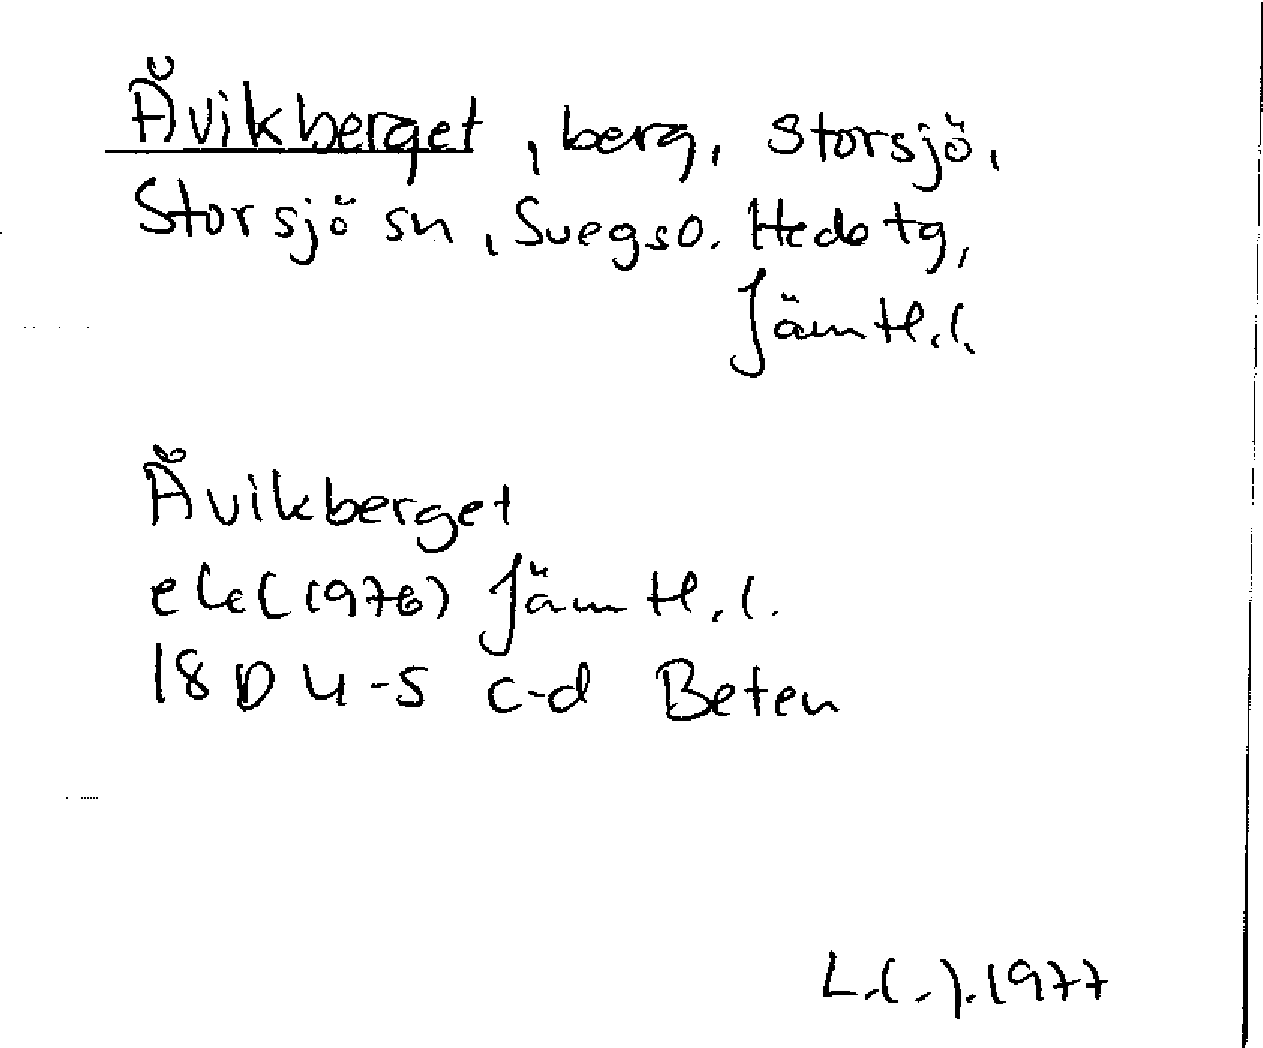 Åvikberget, berg, Storsjö,
Storsjö sn, Svegs o. Hede tg,
Jämtl. l.
Åvikberget
ek (1976) Jämtl. l.
18 D 4-5 c-d Beten
1977